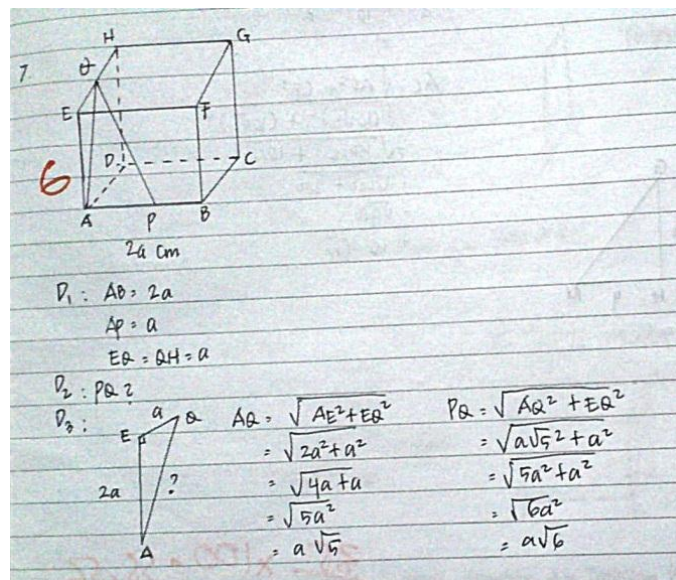 7.
H G
Q
E F
6
D C
A P B
2a cm
D₁ : AB = 2a
AP = a
EQ = QH = a
D₂ : PQ ?
D₃ :
a Q
E
2a ?
A
AQ = √AE²+EQ²
= √2a²+a²
= √4a+a
= √5a²
= a√5
PQ = √AQ²+EQ²
= √a√5²+a²
= √5a²+a²
= √6a²
= a√6